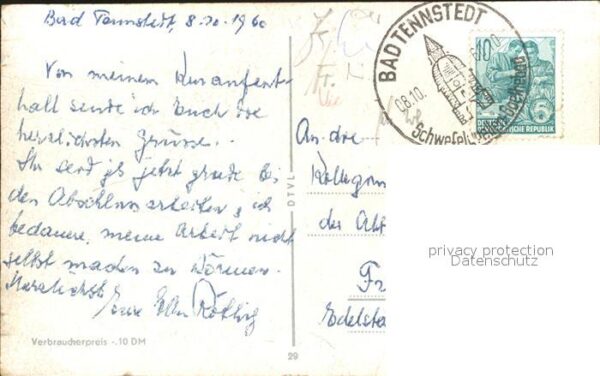 Bad Tennstedt, 8.10.1960
Von meinem Kuraufent-
halt sende ich Euch die
herzlichsten Grüsse.
Ihr seid ja jetzt grade bei
den Abschlussarbeiten, ich
bedauere, meine Arbeit nicht
selbst machen zu können.
Herzlichst
Eure
Verbraucherpreis -.10 DM
DTVL
29
BAD TENNSTEDT
08.10.
Schwefel
10
DEUTSCHE DEMOKRATISCHE REPUBLIK
An die
der Abt
Fr
Edelsta
privacy protection
Datenschutz